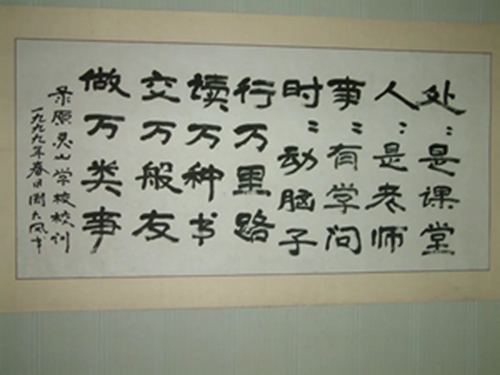 处〻是课堂
人〻是老师
事〻有学问
时〻动脑子
行万里路
读万种书
交万般友
做万类事
录原灵山学校校训
一九九九年春日周大风书